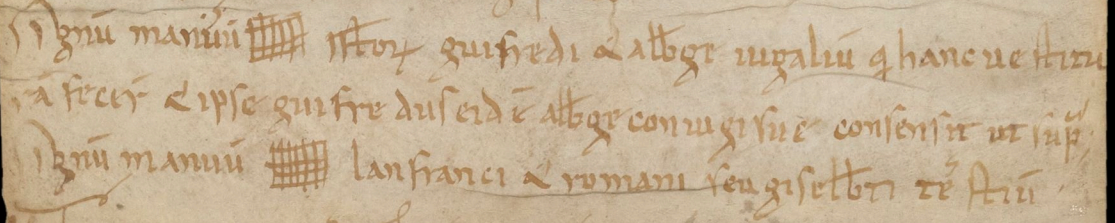 Signū manuū istor guifredi & alb̄ge iugaliū q hanc uestitu
rā fecer̄ & ipse guifredus eidē alb̄ge coniugi sue consensit ut sup̄
Signū manuū lanfranci & romani seu giselb̄ti testiū